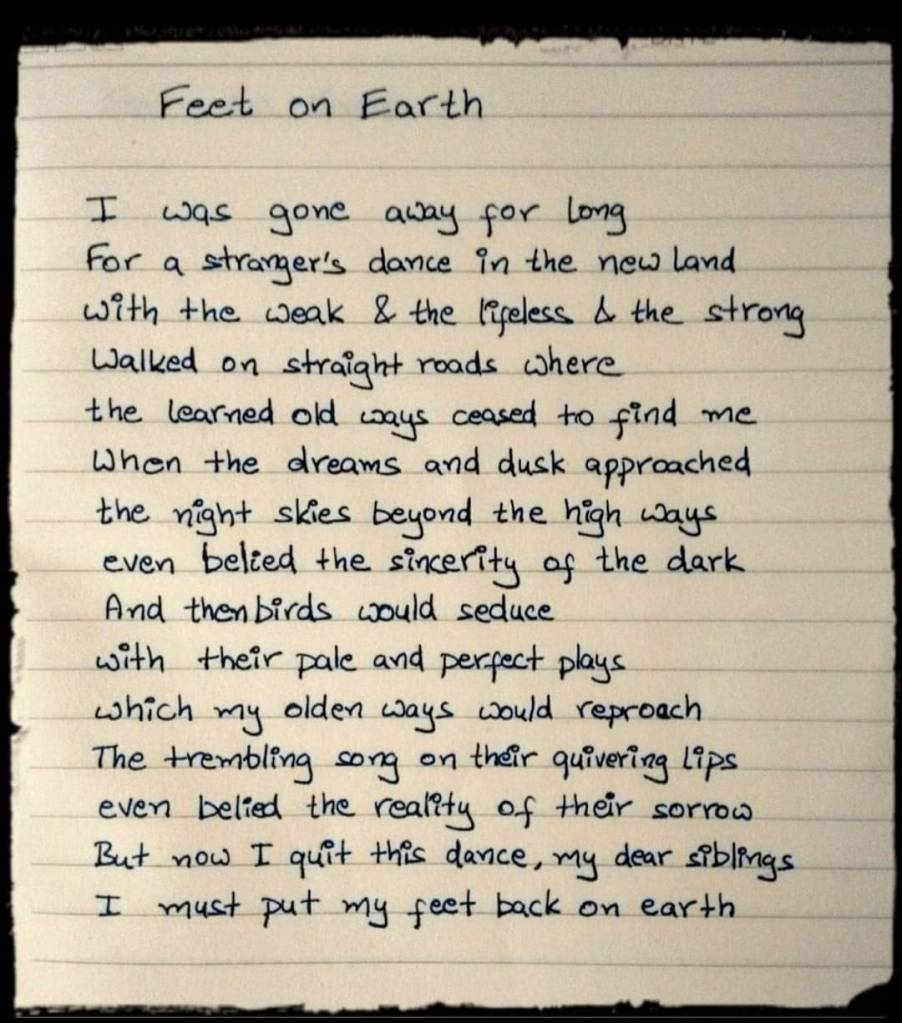 Feet on Earth
I was gone away for long
For a stranger's dance in the new land
with the weak & the lifeless & the strong
Walked on straight roads where
the learned old ways ceased to find me
When the dreams and dusk approached
the night skies beyond the high ways
even belied the sincerity of the dark
And then birds would seduce
with their pale and perfect plays
which my olden ways would reproach
The trembling song on their quivering lips
even belied the reality of their sorrow
But now I quit this dance, my dear siblings
I must put my feet back on earth